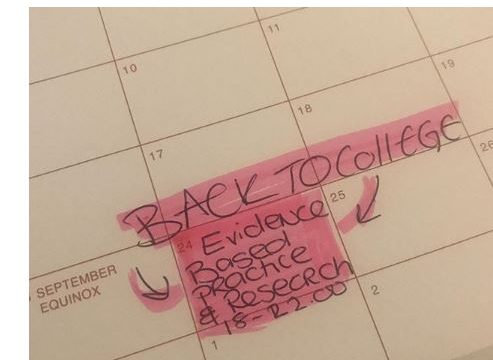 11
10
19
18
17
26
BACK TO COllEGE
25
24
Evidence
Based
practice
& Research
SEPTEMBER
EQUINOX
2
1